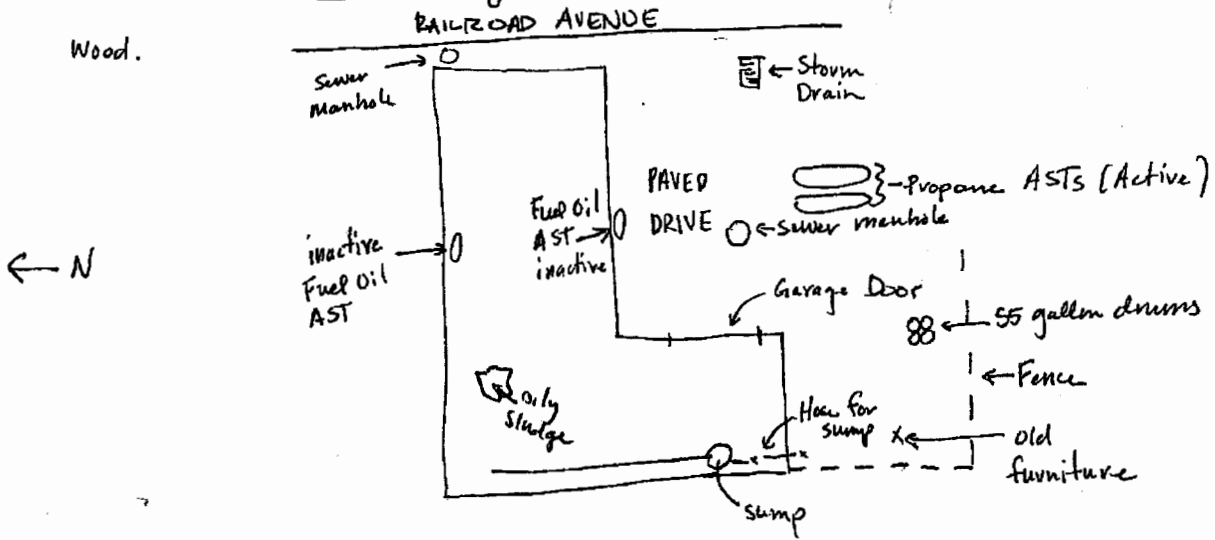 RAILROAD AVENUE
Wood.
Sewer
Manhole
Storm
Drain
PAVED
DRIVE
Propane ASTs (Active)
Sewer manhole
Fuel Oil
AST
inactive
inactive
Fuel Oil
AST
N
Garage Door
55 gallon drums
Fence
oily
Sludge
Hose for
sump
X
old
furniture
sump